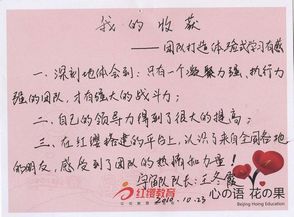 我的收获
——团队打造体验式学习有感
一、深刻地体会到：只有一个凝聚力强、执行力
强的团队，才有强大的战斗力；
二、自己的领导力得到了很大的提高；
三、在红缨搭建的平台上，认识了来自全国各地
的朋友，感受到了团队的热情和力量！
宇宙队 队长：王冬霞
2010.10.23
红缨教育
心の语 花の果
Beijing Hoing Education